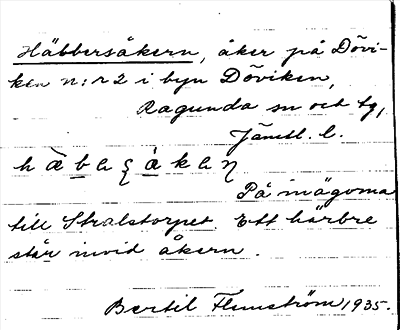 Häbbersåkern, åker på Dövi-
ken n:r 2 i byn Döviken,
Ragunda sn och tg,
Jämtl. l.
På inägorna
till Stralstorpet. Ett härbre
står invid åkern.
Bertil Flemström 1935.